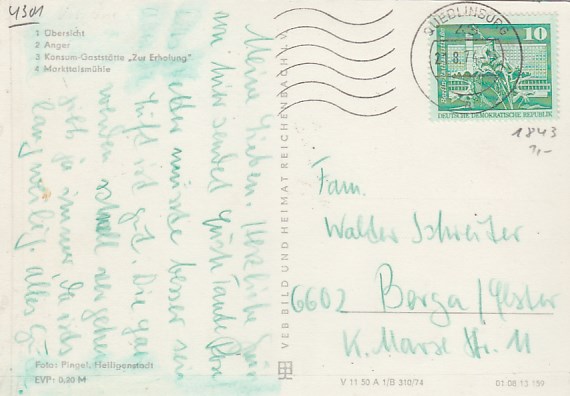 4301
1 Übersicht
2 Anger
3 Konsum-Gaststätte „Zur Erholung"
4 Markttalsmühle
Meine Lieben. Herzliche
sendet Euch Tante
müßte besser sein
Luft ist gut. Die
werden schnell vergehen
ja immer, da ists
langweilig. alles
Foto: Pingel, Heiligenstadt
EVP: 0,20 M
VEB BILD UND HEIMAT REICHENBACH i. V.
QUEDLINBURG
10
DEUTSCHE DEMOKRATISCHE REPUBLIK
1843
Fam.
Walder Schreiter.
6602 Berga/Elster
K. Marx Str. 11
V 11 50 A 1/B 310/74
01 08 13 159